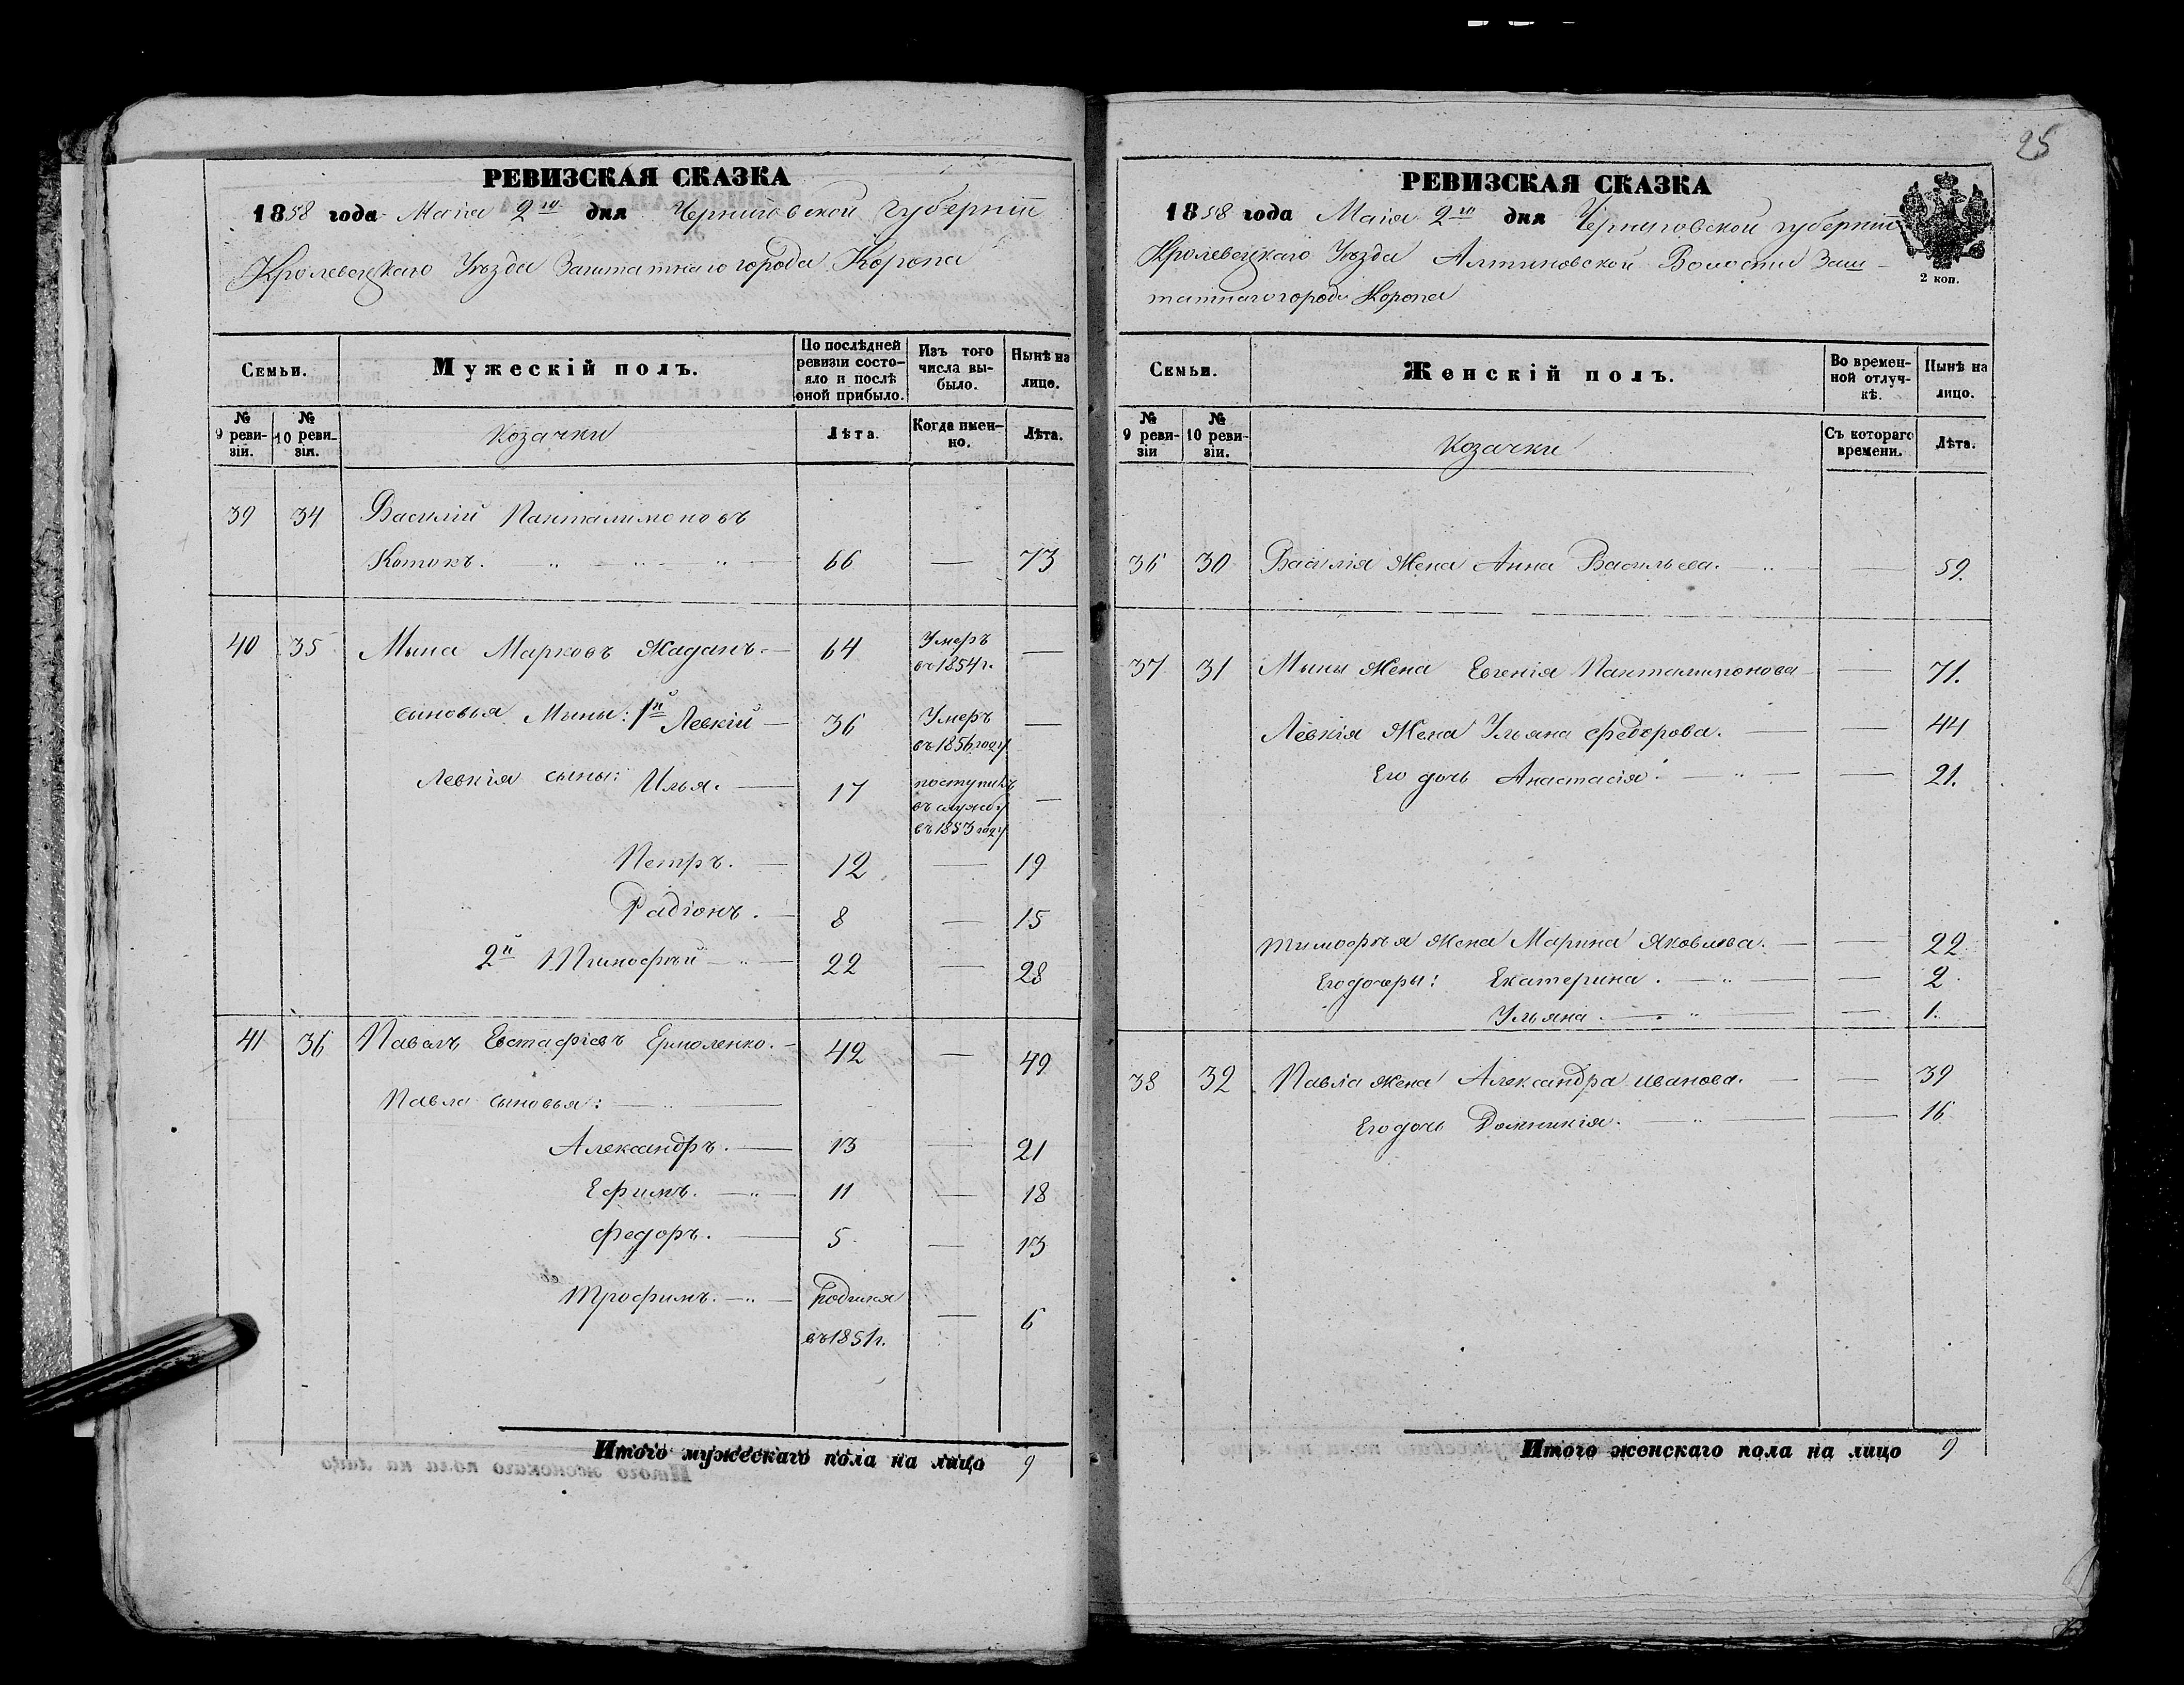 РЕВИЗСКАЯ СКАЗКА
1858 года Маія 2го дня Черниговской губерніи
Кролевецкаго Уѣзда Заштатнаго города Коропа
Семьи.
Мужескій полъ.
По послѣдней ревизіи состо-
яло и послѣ оной прибыло.
Изъ того числа вы-
было.
Нынѣ на лице.
№ 9 реви-
зіи.
№ 10 реви-
зіи.
Козачки
Лѣта.
Когда имен-
но.
Лѣта.
39 34 Василій Панталимоновъ
Котокъ. 66 — 73
40 35 Мына Марковъ Жаданъ. 64 Умеръ въ 1854 г. —
сыновья Мыны: 1й Левкій 36 Умеръ въ 1856 году —
Левкія сыны: Илья. 17 поступилъ въ службу въ 1853 году —
Петръ. 12 — 19
Радіонъ. 8 — 15
2й Тимофѣй 22 — 28
41 36 Павелъ Евстафіевъ Ермоленко. 42 — 49
Павла сыновья:
Александръ. 13 — 21
Ефимъ. 11 — 18
Федоръ. 5 — 13
Трофимъ. Родился въ 1851 г. — 6
Итого мужескаго пола на лицо 9
25
РЕВИЗСКАЯ СКАЗКА
1858 года Маія 2го дня Черниговской губерніи
Кролевецкаго Уѣзда Алтиновской Волости Заш-
татнаго города Коропа
2 коп.
Семьи.
Женскій полъ.
Во времен-
ной отлуч-
кѣ.
Нынѣ на лицо.
№ 9 реви-
зіи
№ 10 реви-
зіи.
Козачки
Съ котораго времени.
Лѣта.
36 30 Василія Жена Анна Васильева. — 59.
37 31 Мыны Жена Евгенія Панталимонова — 71.
Левкія Жена Ульяна Федорова. — 44
Его дочь Анастасія — 21.
Тимофѣя Жена Марина Яковлева. — 22
Его дочеры: Екатерина. — 2.
Ульяна. — 1.
38 32 Павла Жена Александра Иванова. — 39
Его дочь Домникія. — 16
Итого женскаго пола на лицо 9